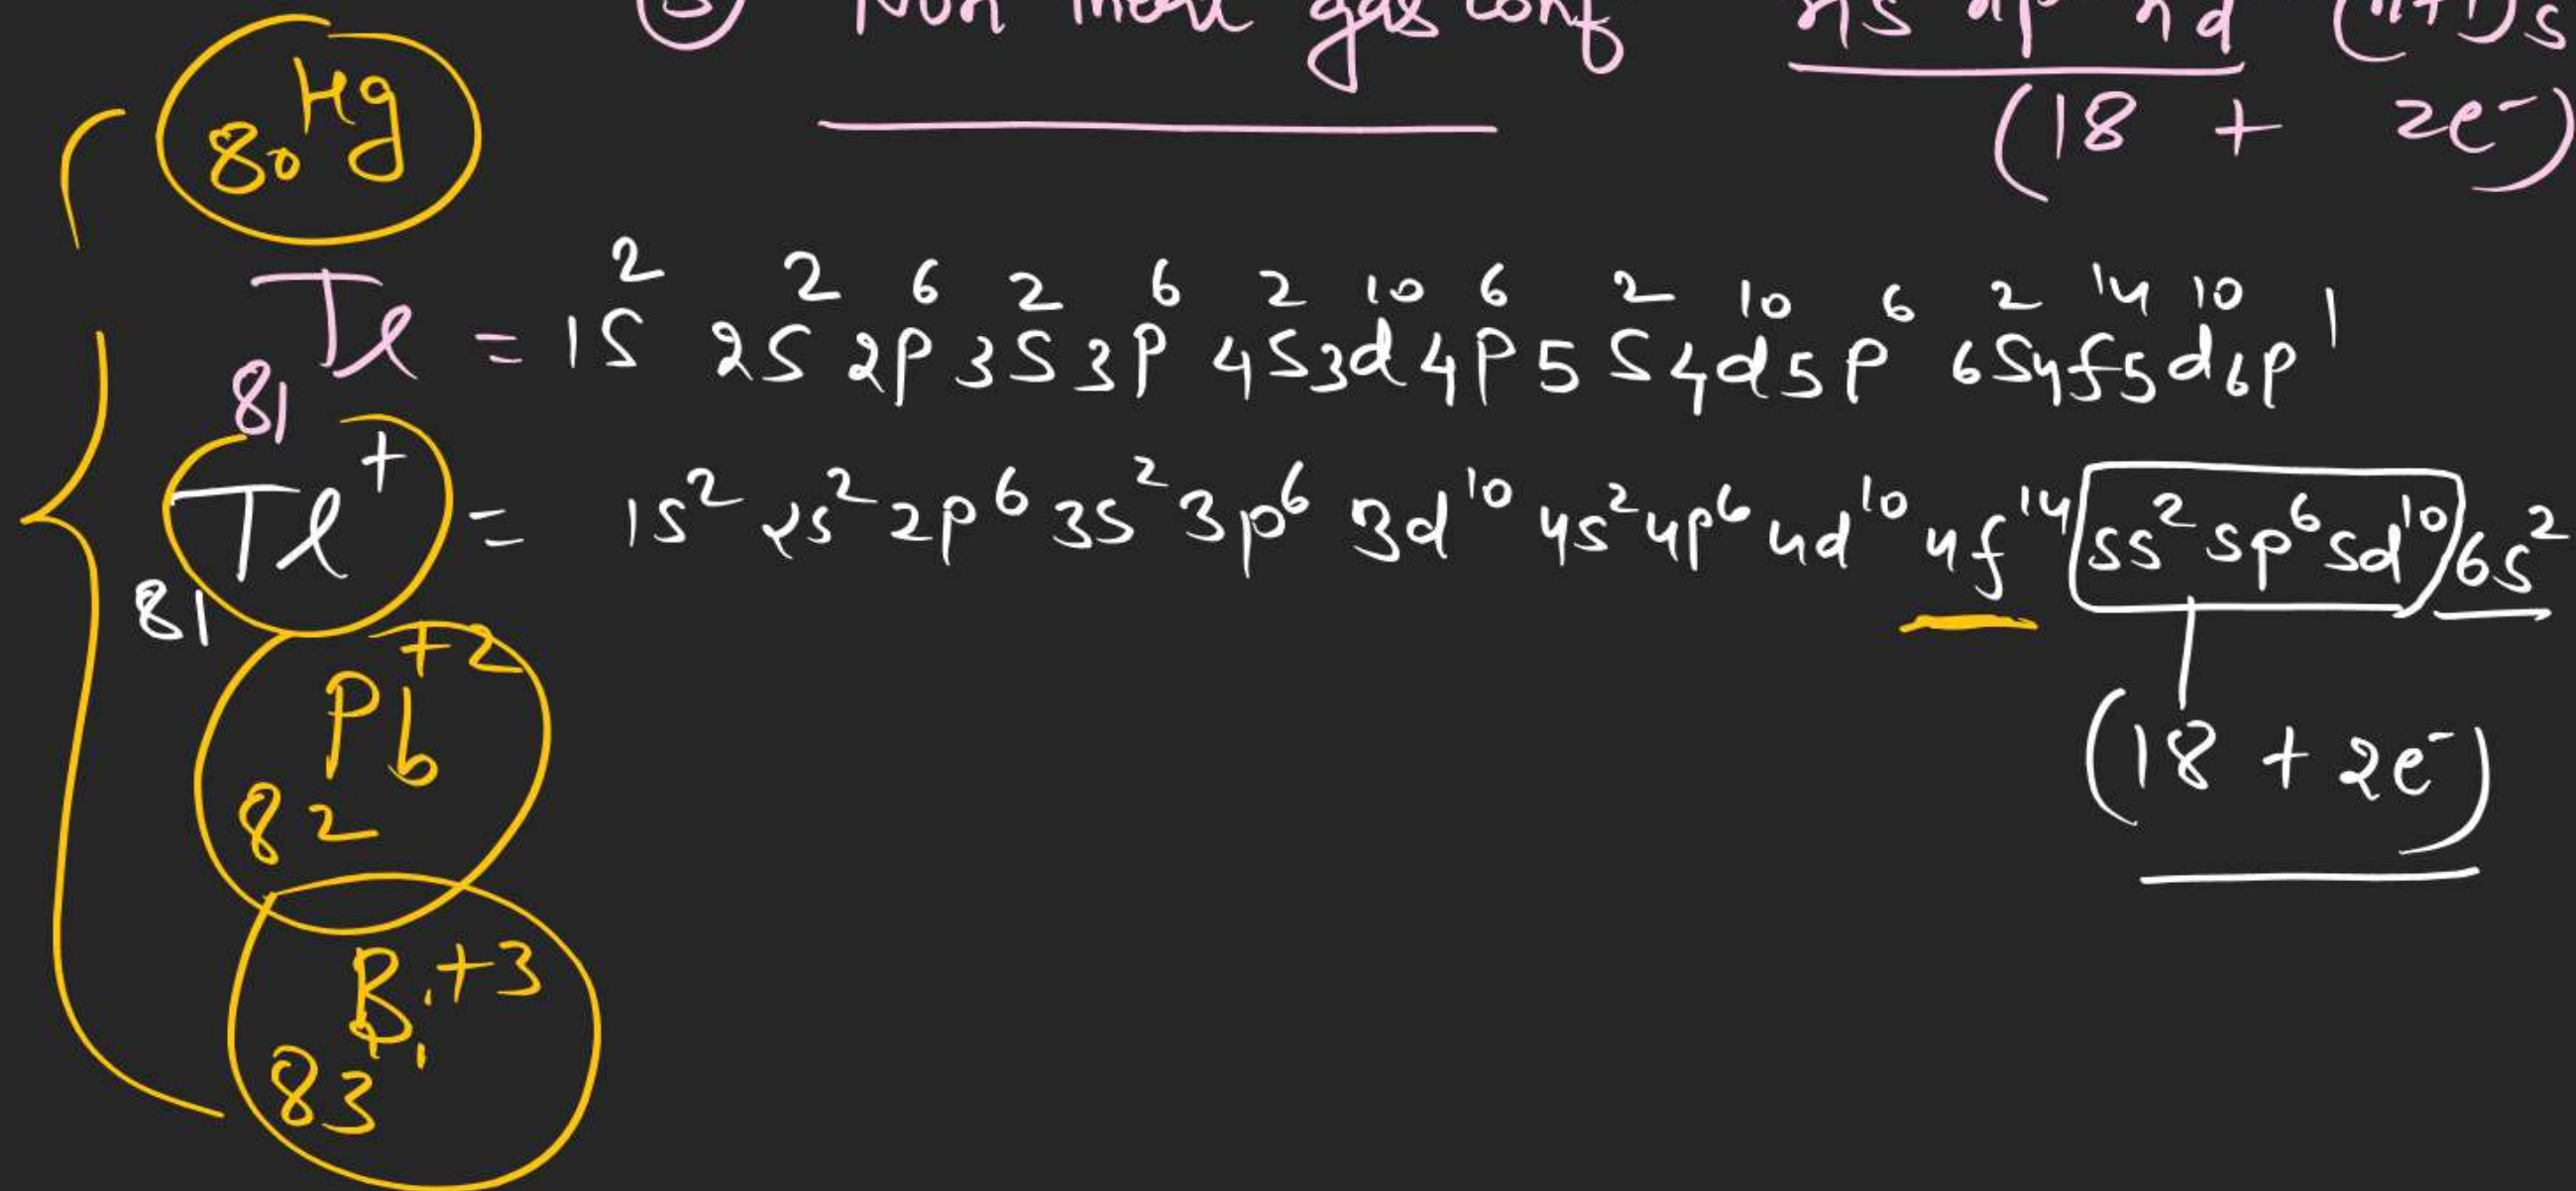 ③ Non inert gas conf ns np nd (n+1)s
(18 + 2e⁻)
₈₀Hg
₈₁Tl = 1s² 2s² 2p⁶ 3s² 3p⁶ 4s² 3d¹⁰ 4p⁶ 5s² 4d¹⁰ 5p⁶ 6s² 4f¹⁴ 5d¹⁰ 6p¹
₈₁Tl⁺ = 1s² 2s² 2p⁶ 3s² 3p⁶ 3d¹⁰ 4s² 4p⁶ 4d¹⁰ 4f¹⁴ 5s² 5p⁶ 5d¹⁰ 6s²
₈₂Pb⁺²
(18 + 2e⁻)
₈₃Bi⁺³